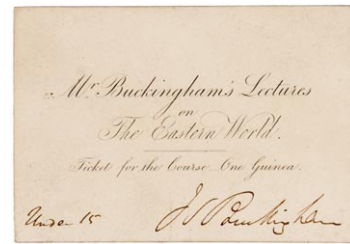 Mr. Buckingham's Lectures
on
The Eastern World.
Ticket for the Course One Guinea.
Under 15 J S Buckingham